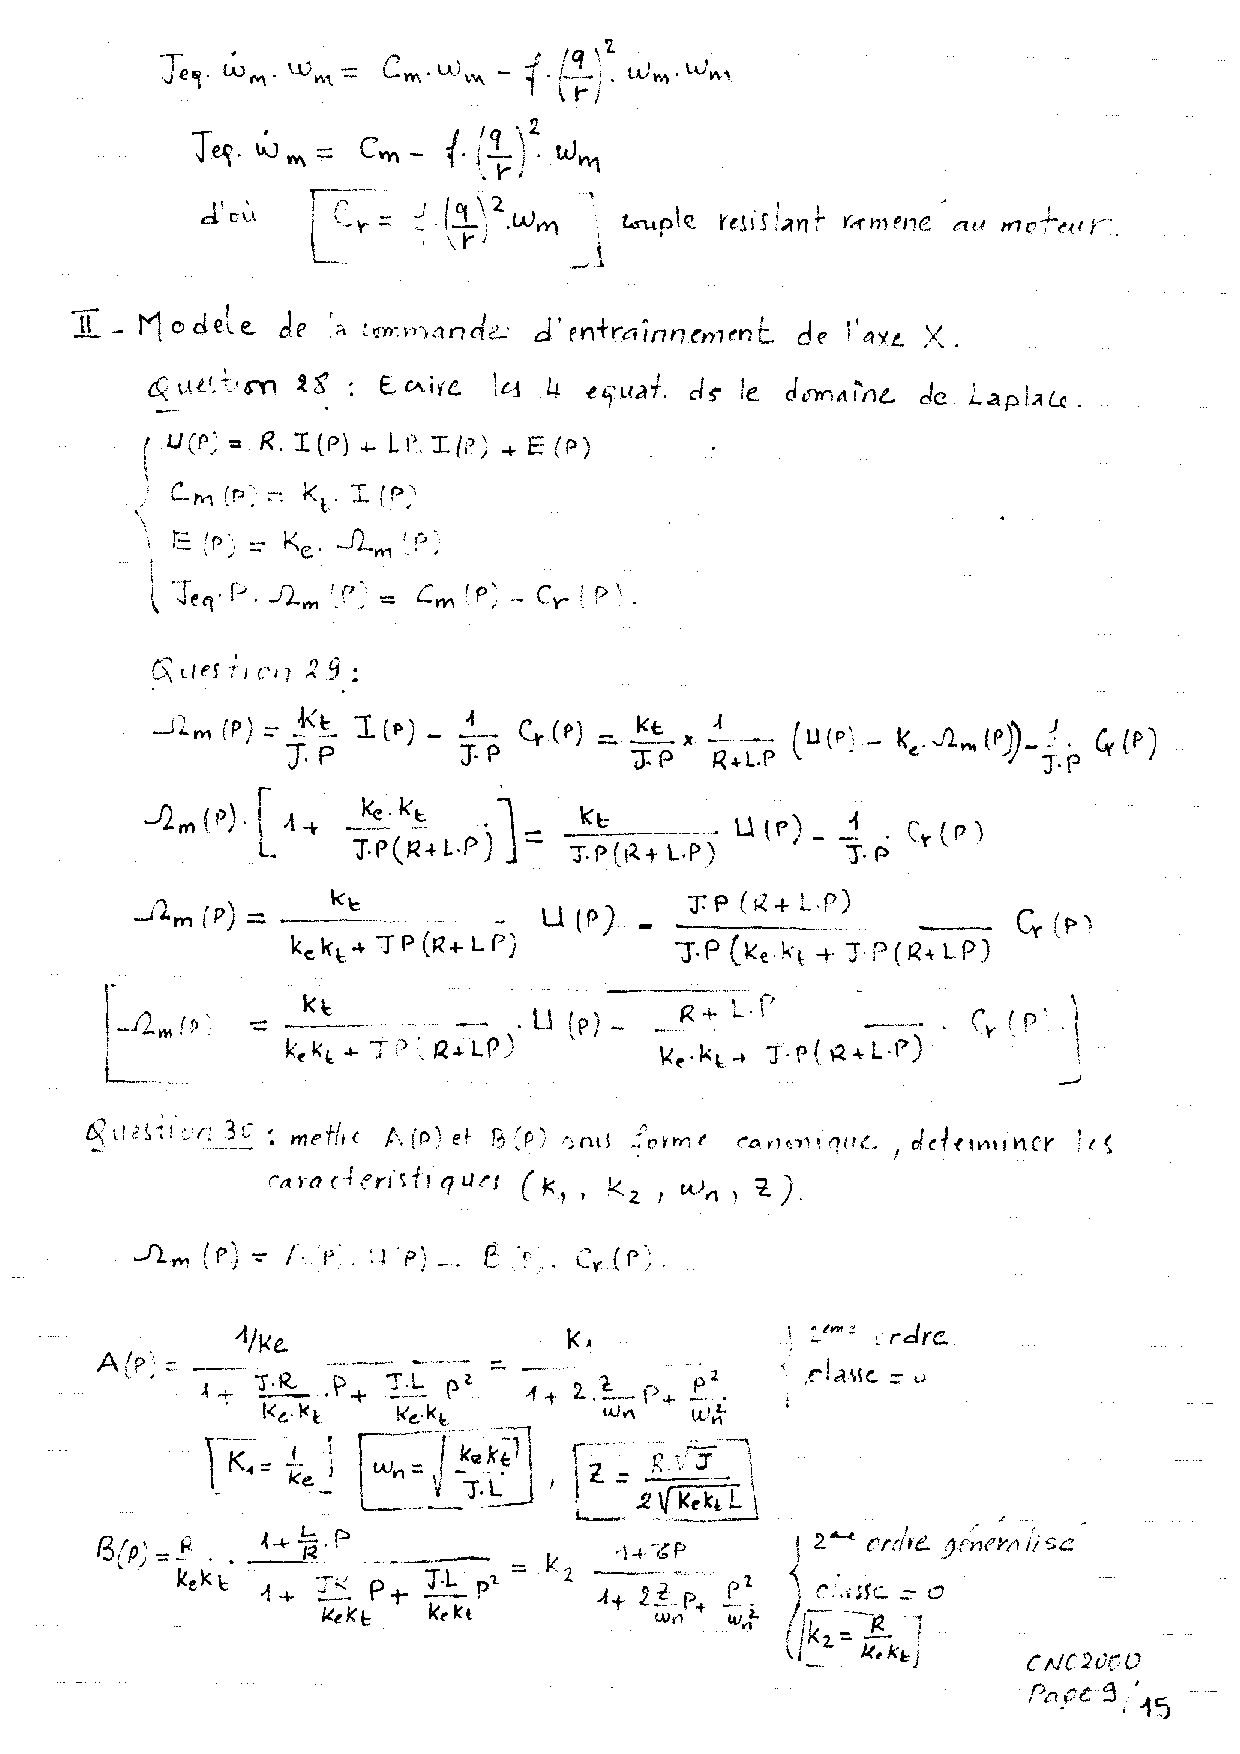 Jeq. ω̇m. ωm = Cm.ωm − f.(q/r)². ωm.ωm
Jeq. ω̇m = Cm − f.(q/r)². ωm
d'où [Cr = f.(q/r)².ωm] couple resistant ramené au moteur.
II - Modele de la commande d'entraînnement de l'axe X.
Question 28 : Ecrire les 4 equat. ds le domaîne de Laplace.
U(P) = R. I(P) + LP. I(P) + E(P)
Cm(P) = Kt. I(P)
E(P) = Ke. Ωm(P)
Jeq.P. Ωm(P) = Cm(P) − Cr(P).
Question 29 :
Ωm(P) = Kt/J.P I(P) − 1/J.P Cr(P) = Kt/J.P × 1/R+L.P (U(P) − Ke. Ωm(P)) − 1/J.P . Cr(P)
Ωm(P).[1 + Ke.Kt/J.P(R+L.P)] = Kt/J.P(R+L.P) U(P) − 1/J.P . Cr(P)
Ωm(P) = Kt/KeKt + JP(R+LP) U(P) − J.P(R+L.P)/J.P(Ke.Kt + J.P(R+LP) Cr(P)
[Ωm(P) = Kt/KeKt + JP(R+LP) . U(P) − R+L.P/Ke.Kt + J.P(R+L.P) . Cr(P).]
Question 30 : mettre A(P) et B(P) sous forme canonique, determiner les
caracteristiques (K1, K2, ωn, Z).
Ωm(P) = A(P). U(P) − B(P). Cr(P).
A(P) = 1/Ke / 1 + J.R/Ke.Kt .P + J.L/Ke.Kt P² = K1 / 1 + 2.Z/ωn P + P²/ωn² 2eme ordre
classe = 0
[K1 = 1/Ke] [ωn = √(KeKt/J.L)], [Z = R.√J / 2√KeKtL]
B(P) = R/KeKt . 1+L/R.P / 1 + JR/KeKt P + J.L/KeKt P² = K2 1+τP / 1 + 2Z/ωn P + P²/ωn² 2eme ordre géneralisé
classe = 0
[K2 = R/KeKt]
CNC2000
Page 9/15